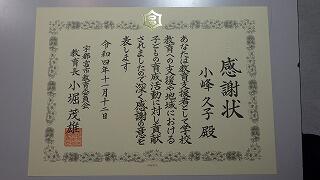 感謝状
小峰 久子 殿
あなたは教育支援者として学校
教育への支援や地域における
子どもの育成活動に対し貢献
されましたので深く感謝の意を
表します
令和四年十一月十二日
宇都宮市教育委員会
教育長 小堀 茂雄